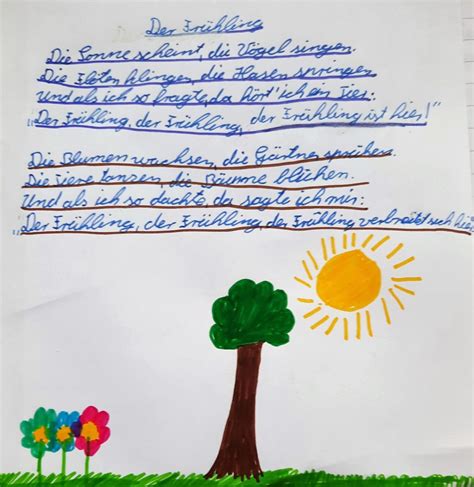 Der Frühling
Die Sonne scheint, die Vögel singen.
Die Flöten klingen, die Hasen springen
Und als ich so fragte, da hört' ich ein Tier:
„Der Frühling, der Frühling, der Frühling ist hier!"
Die Blumen wachsen, die Gärtner sprühen.
Die Tiere tanzen, die Bäume blühen.
Und als ich so dachte, da sagte ich mir:
„Der Frühling, der Frühling, der Frühling verbreitet sich hier